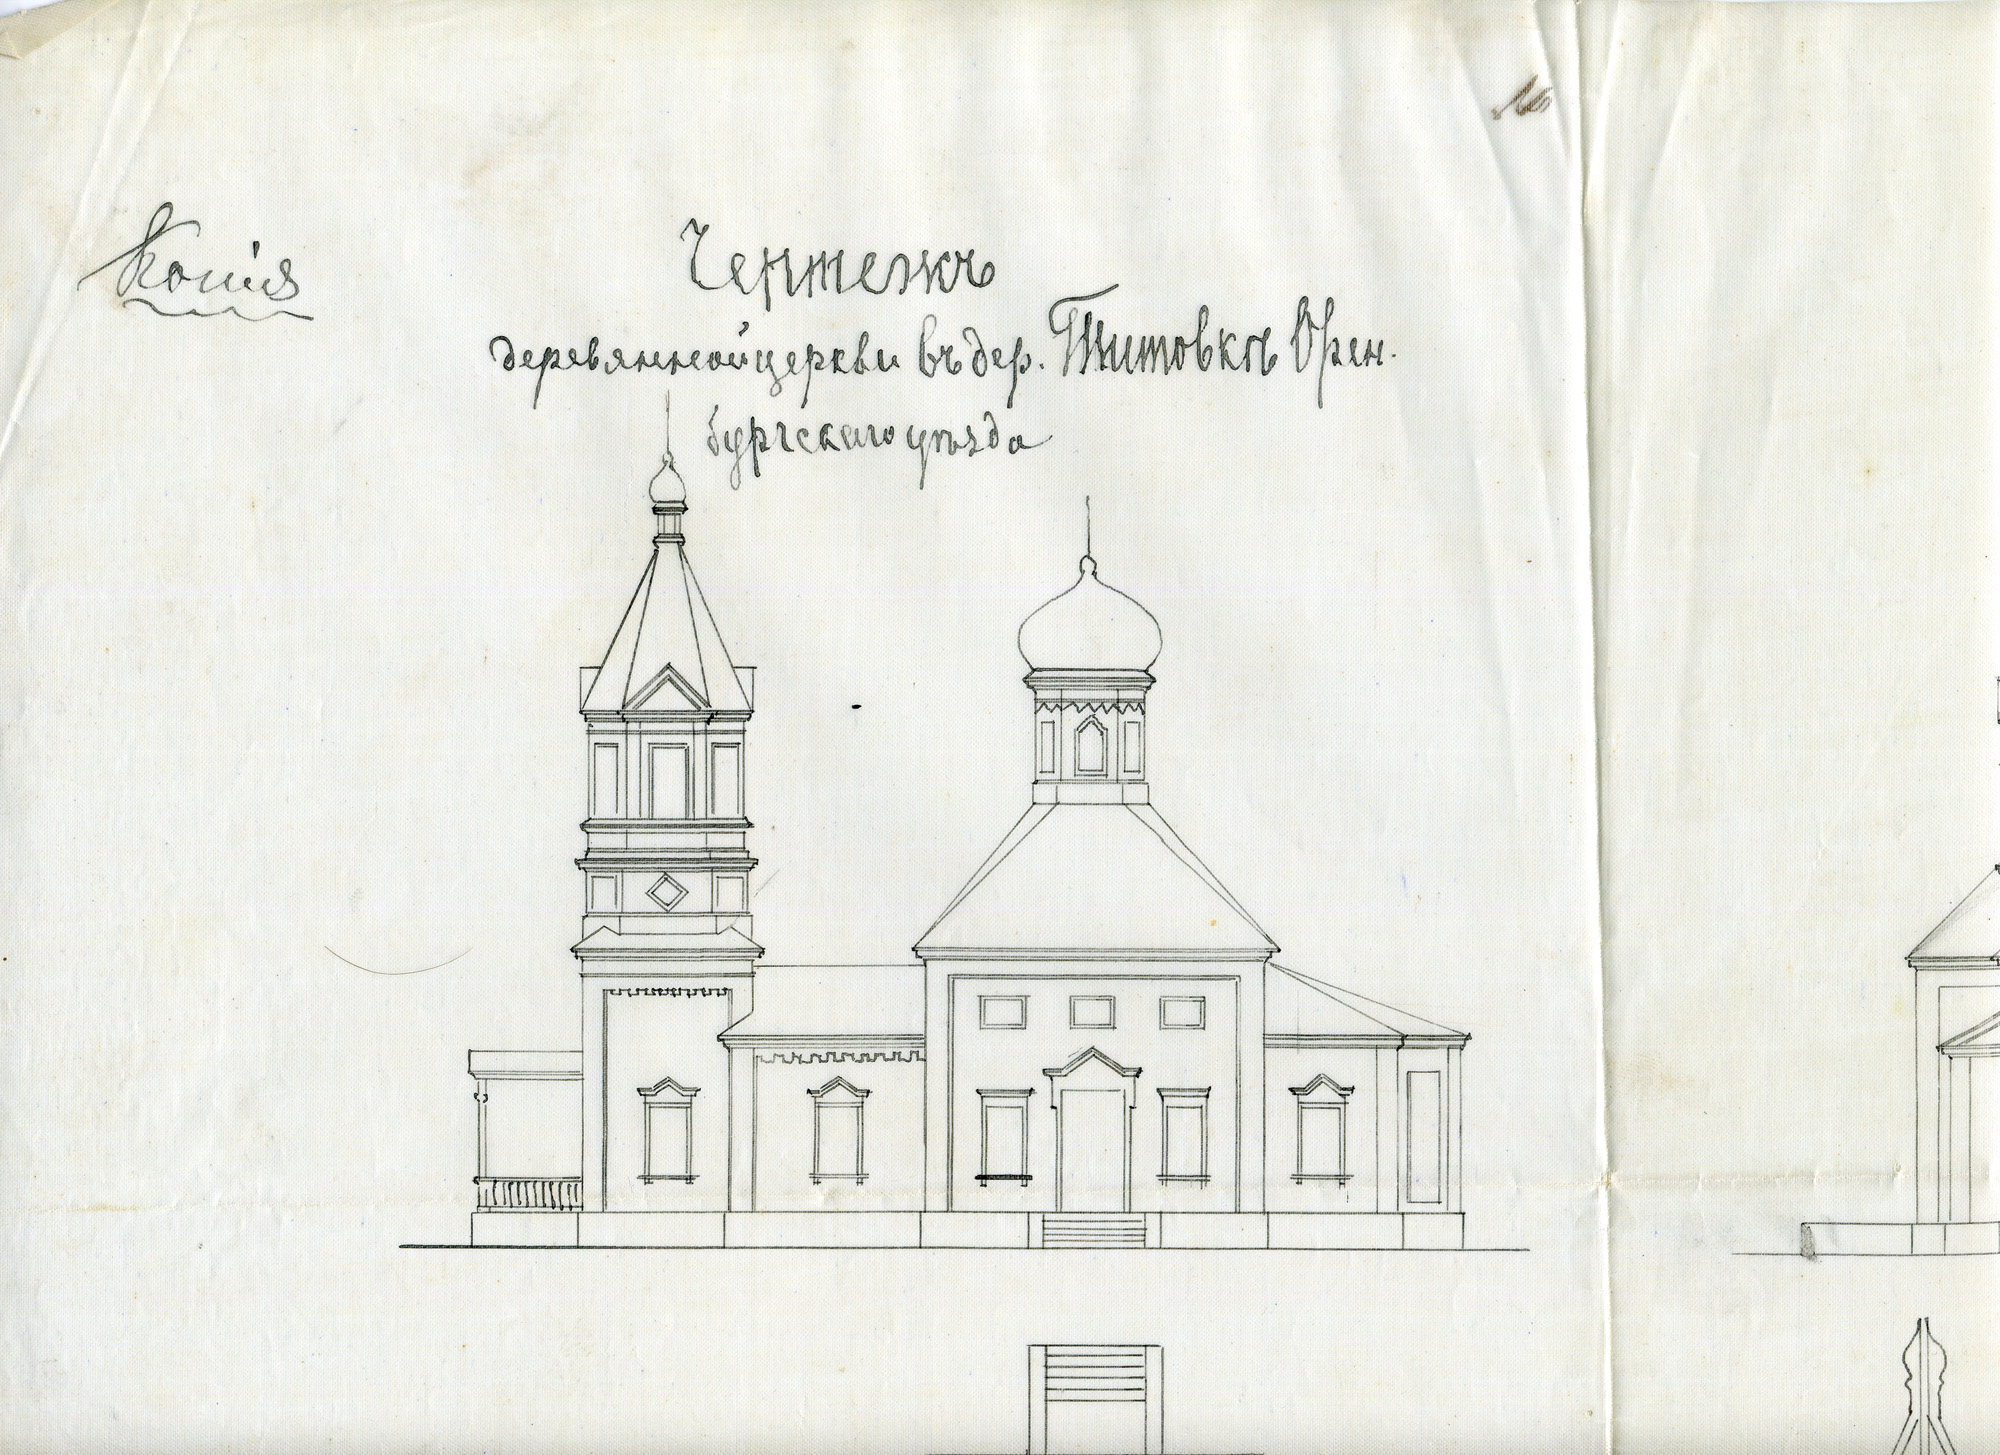 16
Копія
Чертежъ
деревянной церкви въ дер. Титовкѣ Орен-
бургскаго уѣзда